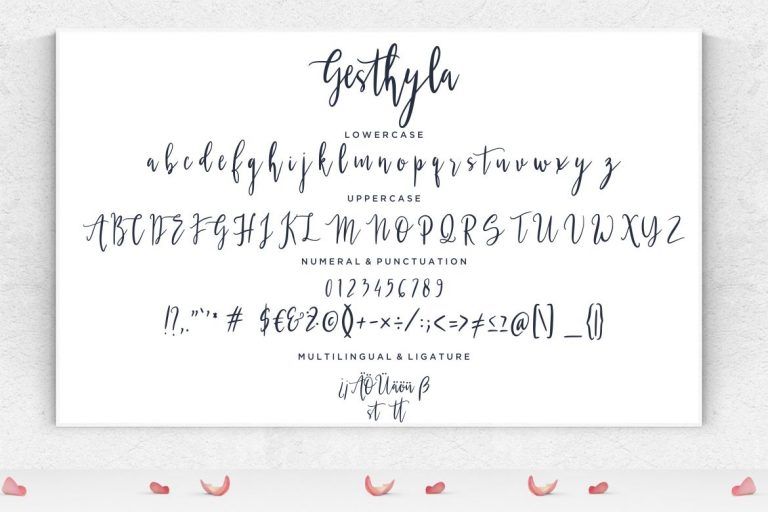 Gesthyla
LOWERCASE
a b c d e f g h i j k l m n o p q r s t u v w x y z
UPPERCASE
A B C D E F G H I J K L M N O P Q R S T U V W X Y Z
NUMERAL & PUNCTUATION
0 1 2 3 4 5 6 7 8 9
!?,."`'* # $€&Ž·©()+-×÷/:;<=>≠≤≥@[\] _{|}
MULTILINGUAL & LIGATURE
¿¡ÄÖÜäöü ß
st tt